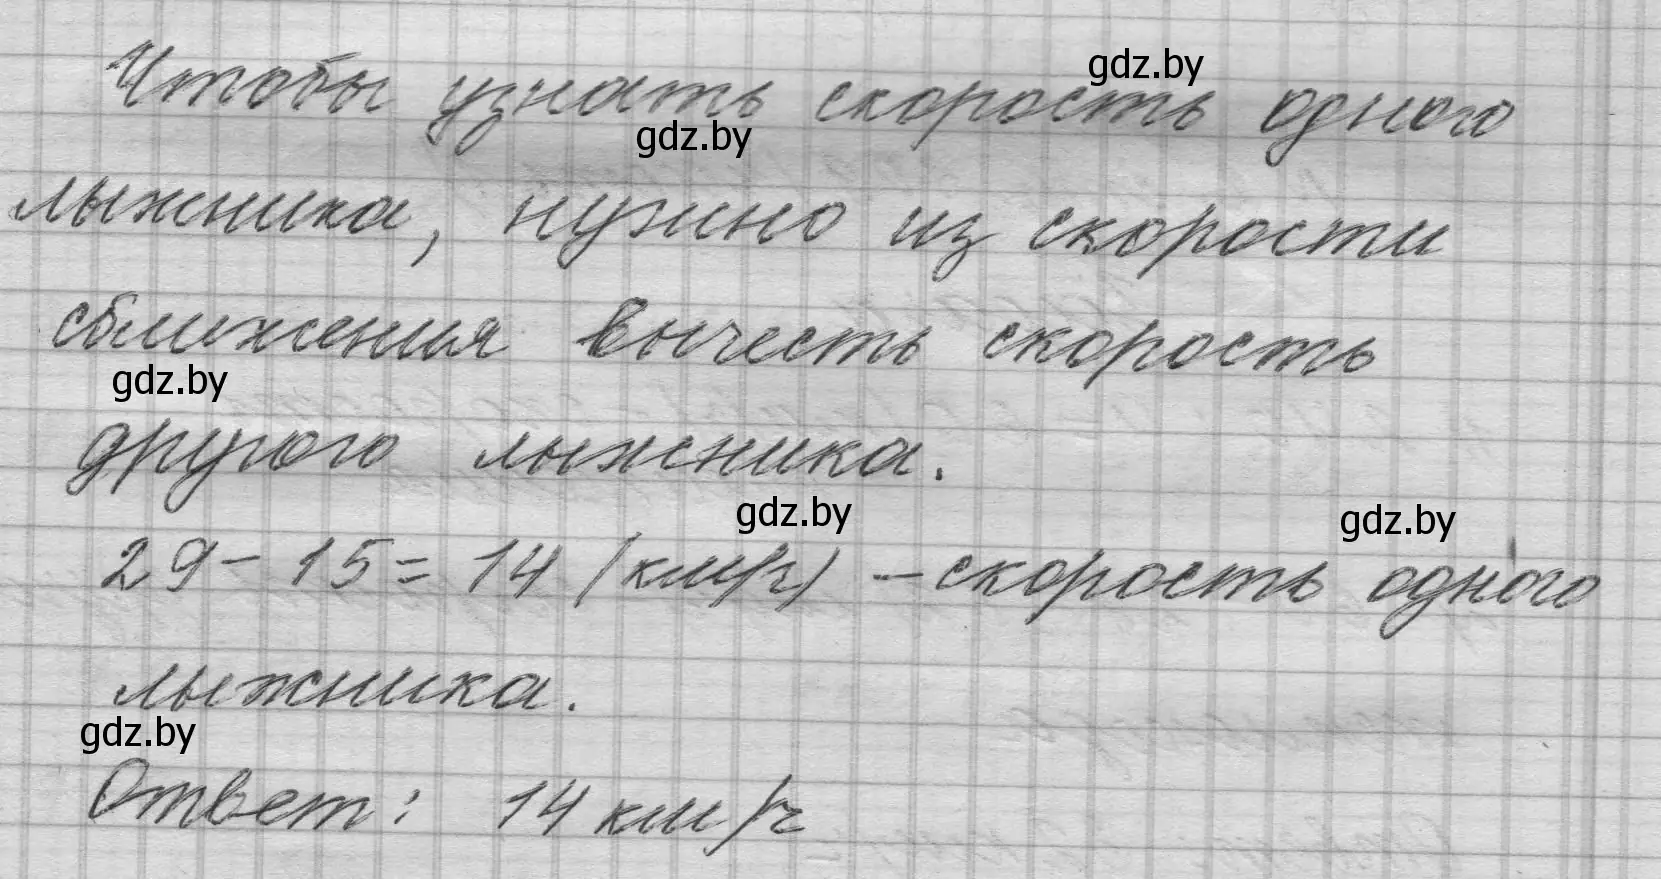 gdz.by
Чтобы узнать скорость одного
gdz.by
лыжника, нужно из скорости
сближения вычесть скорость
gdz.by
другого лыжника.
gdz.by
gdz.by
29 - 15 = 14 (км/ч) - скорость одного
лыжника.
gdz.by
Ответ: 14 км/ч